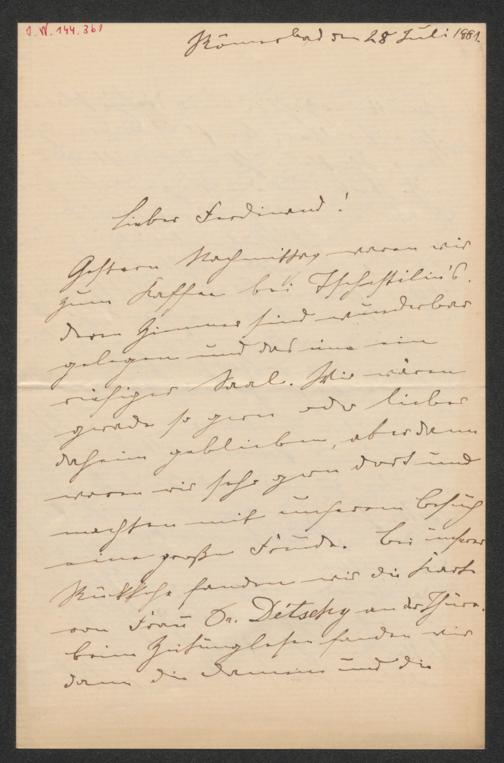 J.N. 144.361
Römerbad den 28 Juli 1881.
Lieber Ferdinand!
Gestern Nachmittag waren wir
zum Kaffee bei
deren Zimmer sind wunderbar
gelegen und das eine ein
riesiger Saal. Wir wären
gerade so gern oder lieber
daheim geblieben, aber dann
waren wir sehr gern dort und
machten mit unserem Besuch
eine große Freude. Bei unserer
Rückkehr fanden wir die Karte
von Frau Dr. Détschy an der Thüre.
beim Zeitunglesen fanden wir
dann die Damen und die